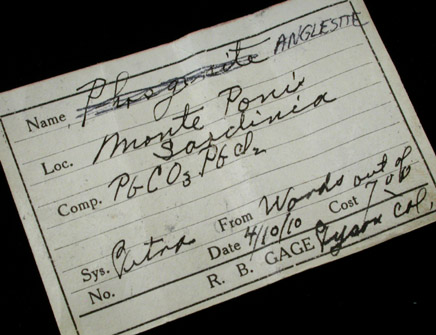 Name Phosgenite ANGLESITE
Loc. Monte Poni
Sardinia
Comp. PbCO3 PbCl2
Sys. From Wards out of
No. Date 4/10/10 Cost
R. B. GAGE Tyson Col.